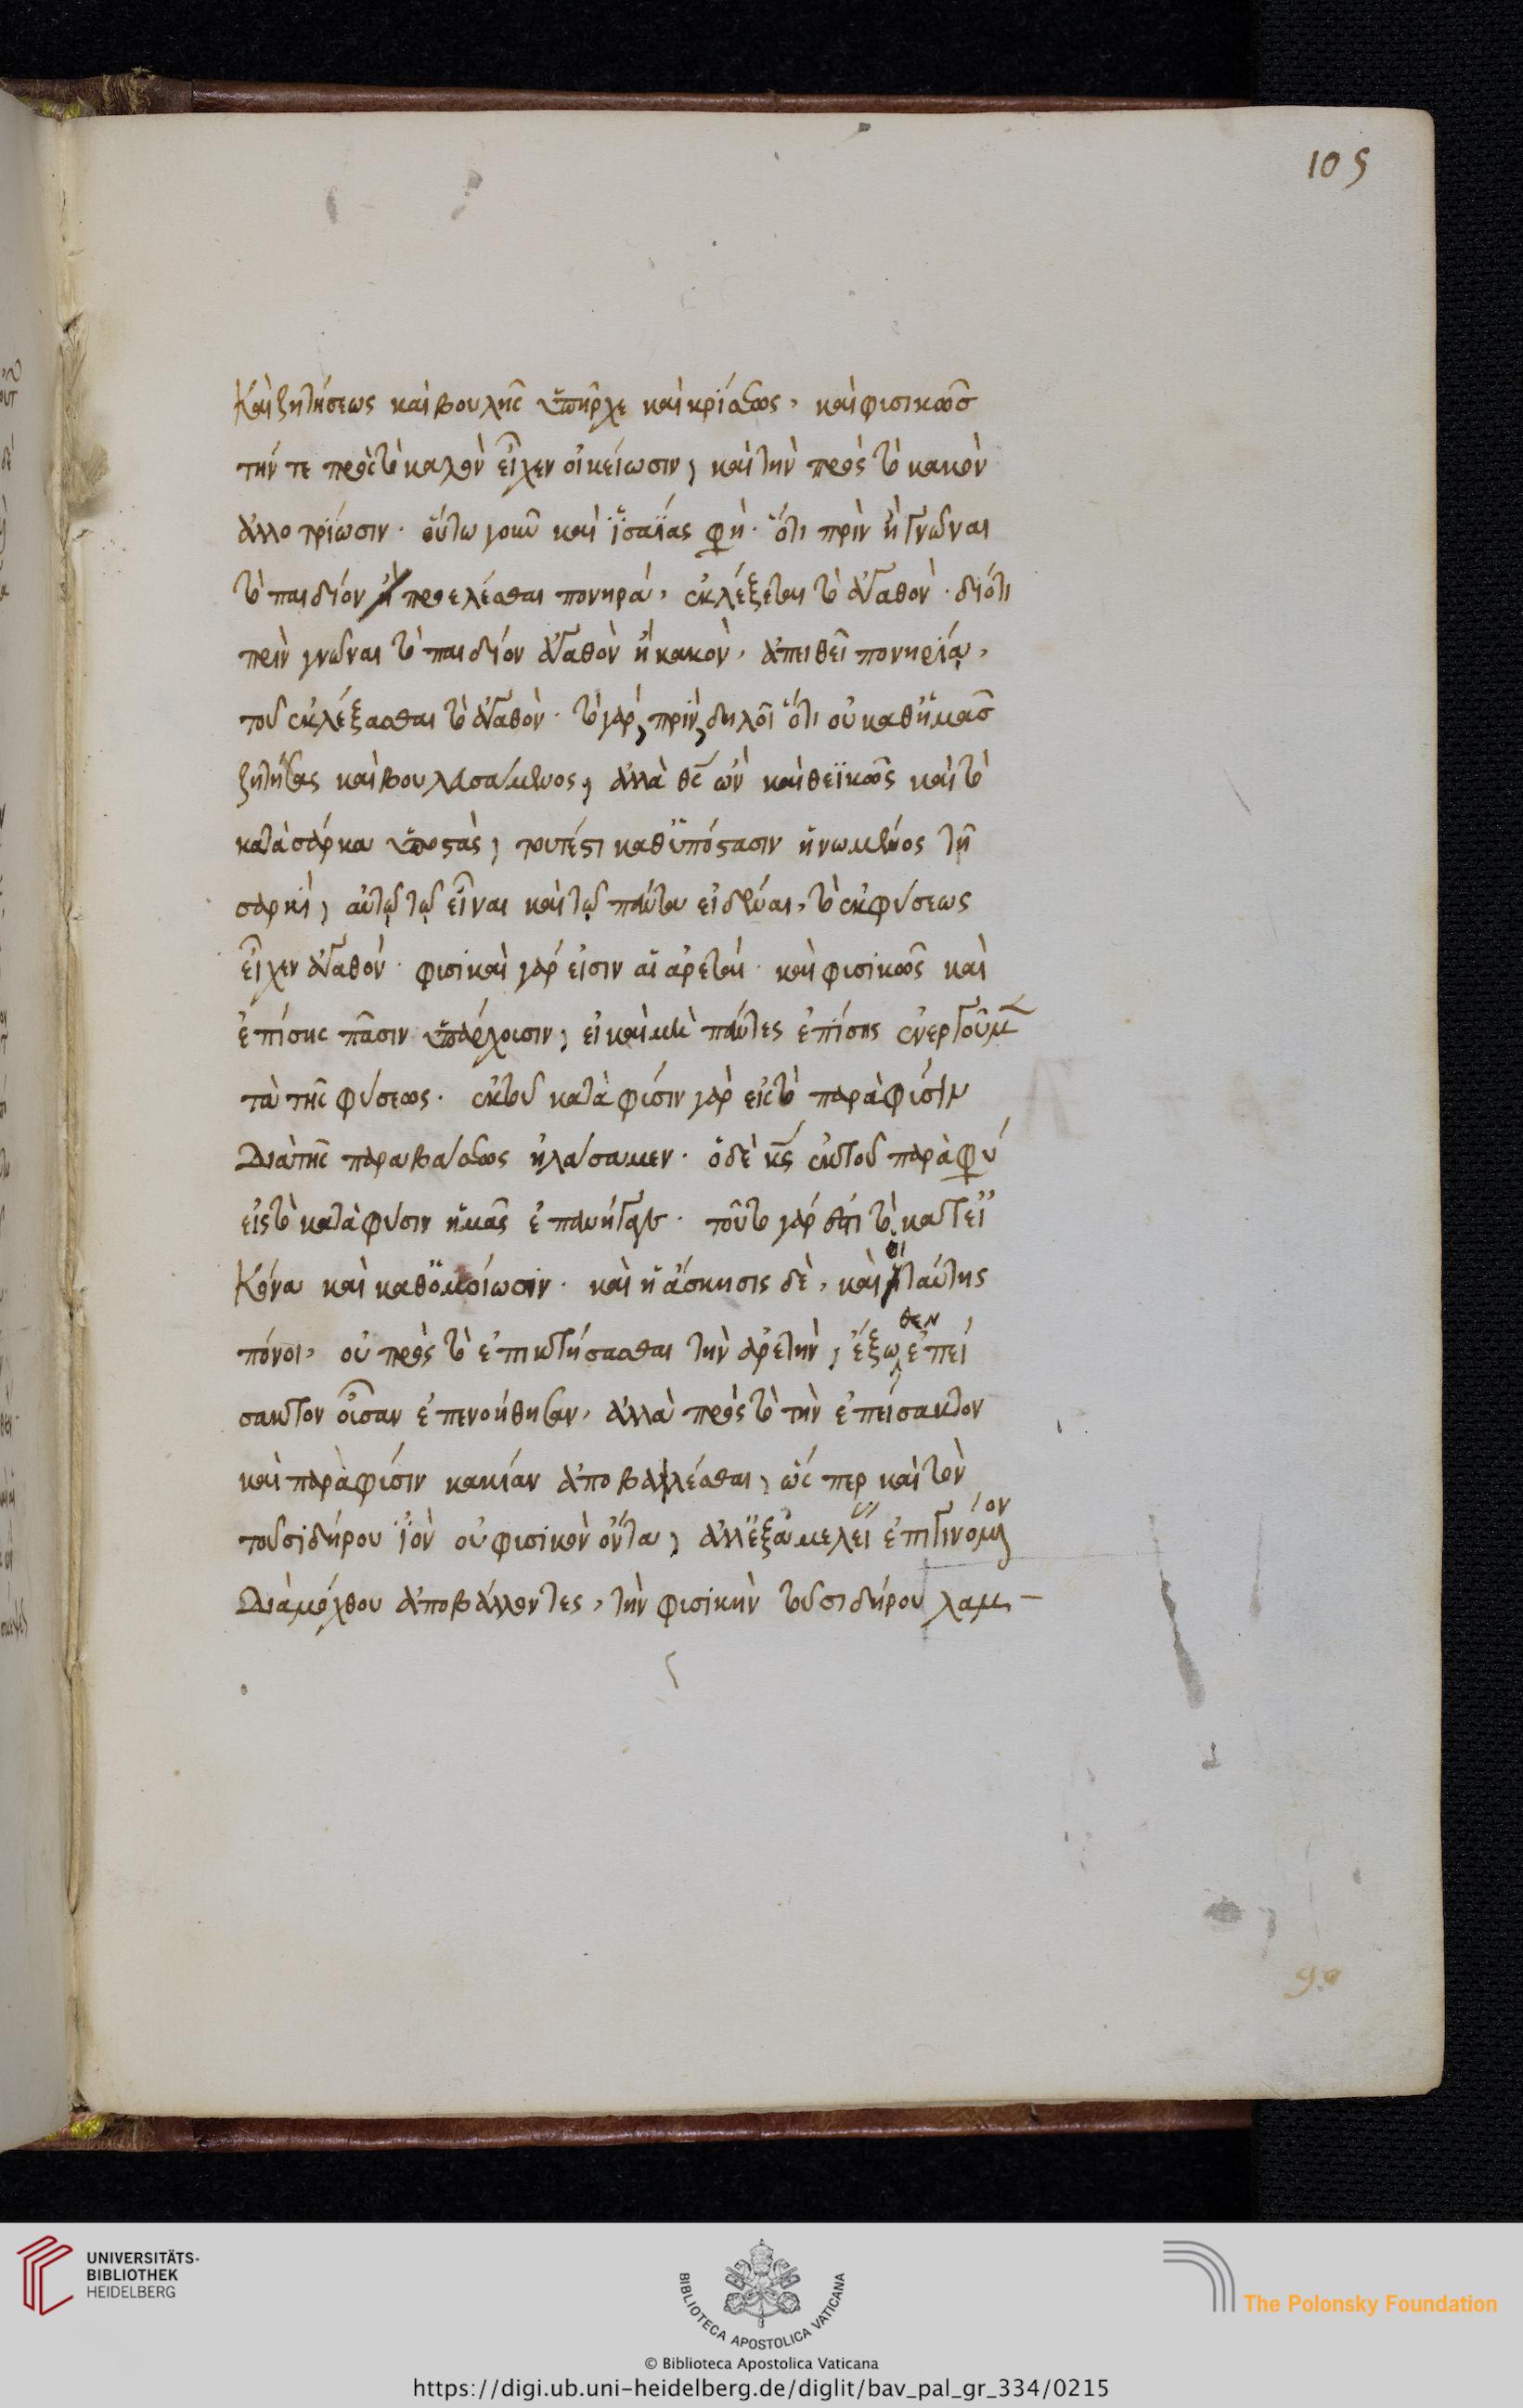 105
Καὶ ζητήσεως καὶ βουλῆς ὑπῆρχε καὶ κρίσεως, καὶ φισικῶσ
τήν τε πρὸς τὸ καλὸν εἶχεν οἰκείωσιν, καὶ τὴν πρὸς τὸ κακὸν
ἀλλοτρίωσιν. οὕτω γοῦν καὶ ἡσαΐας φη. ὅτι πρὶν ἢ γνῶναι
τὸ παιδίον ἢ προελέσθαι πονηρά, ἐκλέξεται τὸ ἀγαθόν. διότι
πρὶν γνῶναι τὸ παιδίον ἀγαθὸν ἢ κακὸν, ἀπειθεῖ πονηρίᾳ,
τοῦ ἐκλέξασθαι τὸ ἀγαθὸν. τὸ γὰρ, πρίν, δηλοῖ ὅτι οὐ καθ' ἡμᾶσ
ζητήσας καὶ βουλευσάμενος, ἀλλὰ θς ὢν καὶ θεϊκῶς καὶ τὸ
κατὰ σάρκα ὑποστὰς, τουτέστι καθ' ὑπόστασιν ἡνωμένος τῇ
σαρκὶ, αὐτῷ τῷ εἶναι καὶ τῷ πάντα εἰδέναι, τὸ ἐκ φύσεως
εἶχεν ἀγαθόν. φισικαὶ γάρ εἰσιν αἱ ἀρεταὶ. καὶ φισικῶς καὶ
ἐπίσης πᾶσιν ὑπάρχοισιν, εἰ καὶ μὴ πάντες ἐπίσης ἐνεργοῦμ
τὰ τῆς φύσεως. ἐκ τοῦ κατὰ φίσιν γὰρ εἰς τὸ παρὰ φίσιν
Διὰ τῆς παραβάσεως ἠλάσαμεν. ὁ δὲ κς ἐκ τοῦ παρὰ φύ
εἰς τὸ κατὰ φύσιν ἡμᾶς ἐπανήγαγε. τοῦτο γάρ ἐστι τὸ κατ' εἰ
Κόνα καὶ καθ' ὁμοίωσιν. καὶ ἡ ἄσκησις δὲ, καὶ οἱ ταύτης
πόνοι, οὐ πρὸς τὸ ἐπικτήσασθαι τὴν ἀρετὴν, ἔξωθεν ἐπεί
σακτον οἶσαν ἐπενοήθησαν, ἀλλὰ πρὸς τὸ τὴν ἐπείσακτον
καὶ παρὰ φίσιν κακίαν ἀποβαλέσθαι, ὥς περ καὶ τὸν
τοῦ σιδήρου ἰὸν οὐ φισικὸν ὄντα, ἀλλ' ἐξ ἀμελεί ἐπιγινόμενον
Διὰ μόχθου ἀποβάλλοντες, τὴν φισικὴν τοῦ σιδήρου λαμ-
UNIVERSITÄTS-
BIBLIOTHEK
HEIDELBERG
BIBLIOTECA APOSTOLICA VATICANA
The Polonsky Foundation
© Biblioteca Apostolica Vaticana
https://digi.ub.uni-heidelberg.de/diglit/bav_pal_gr_334/0215